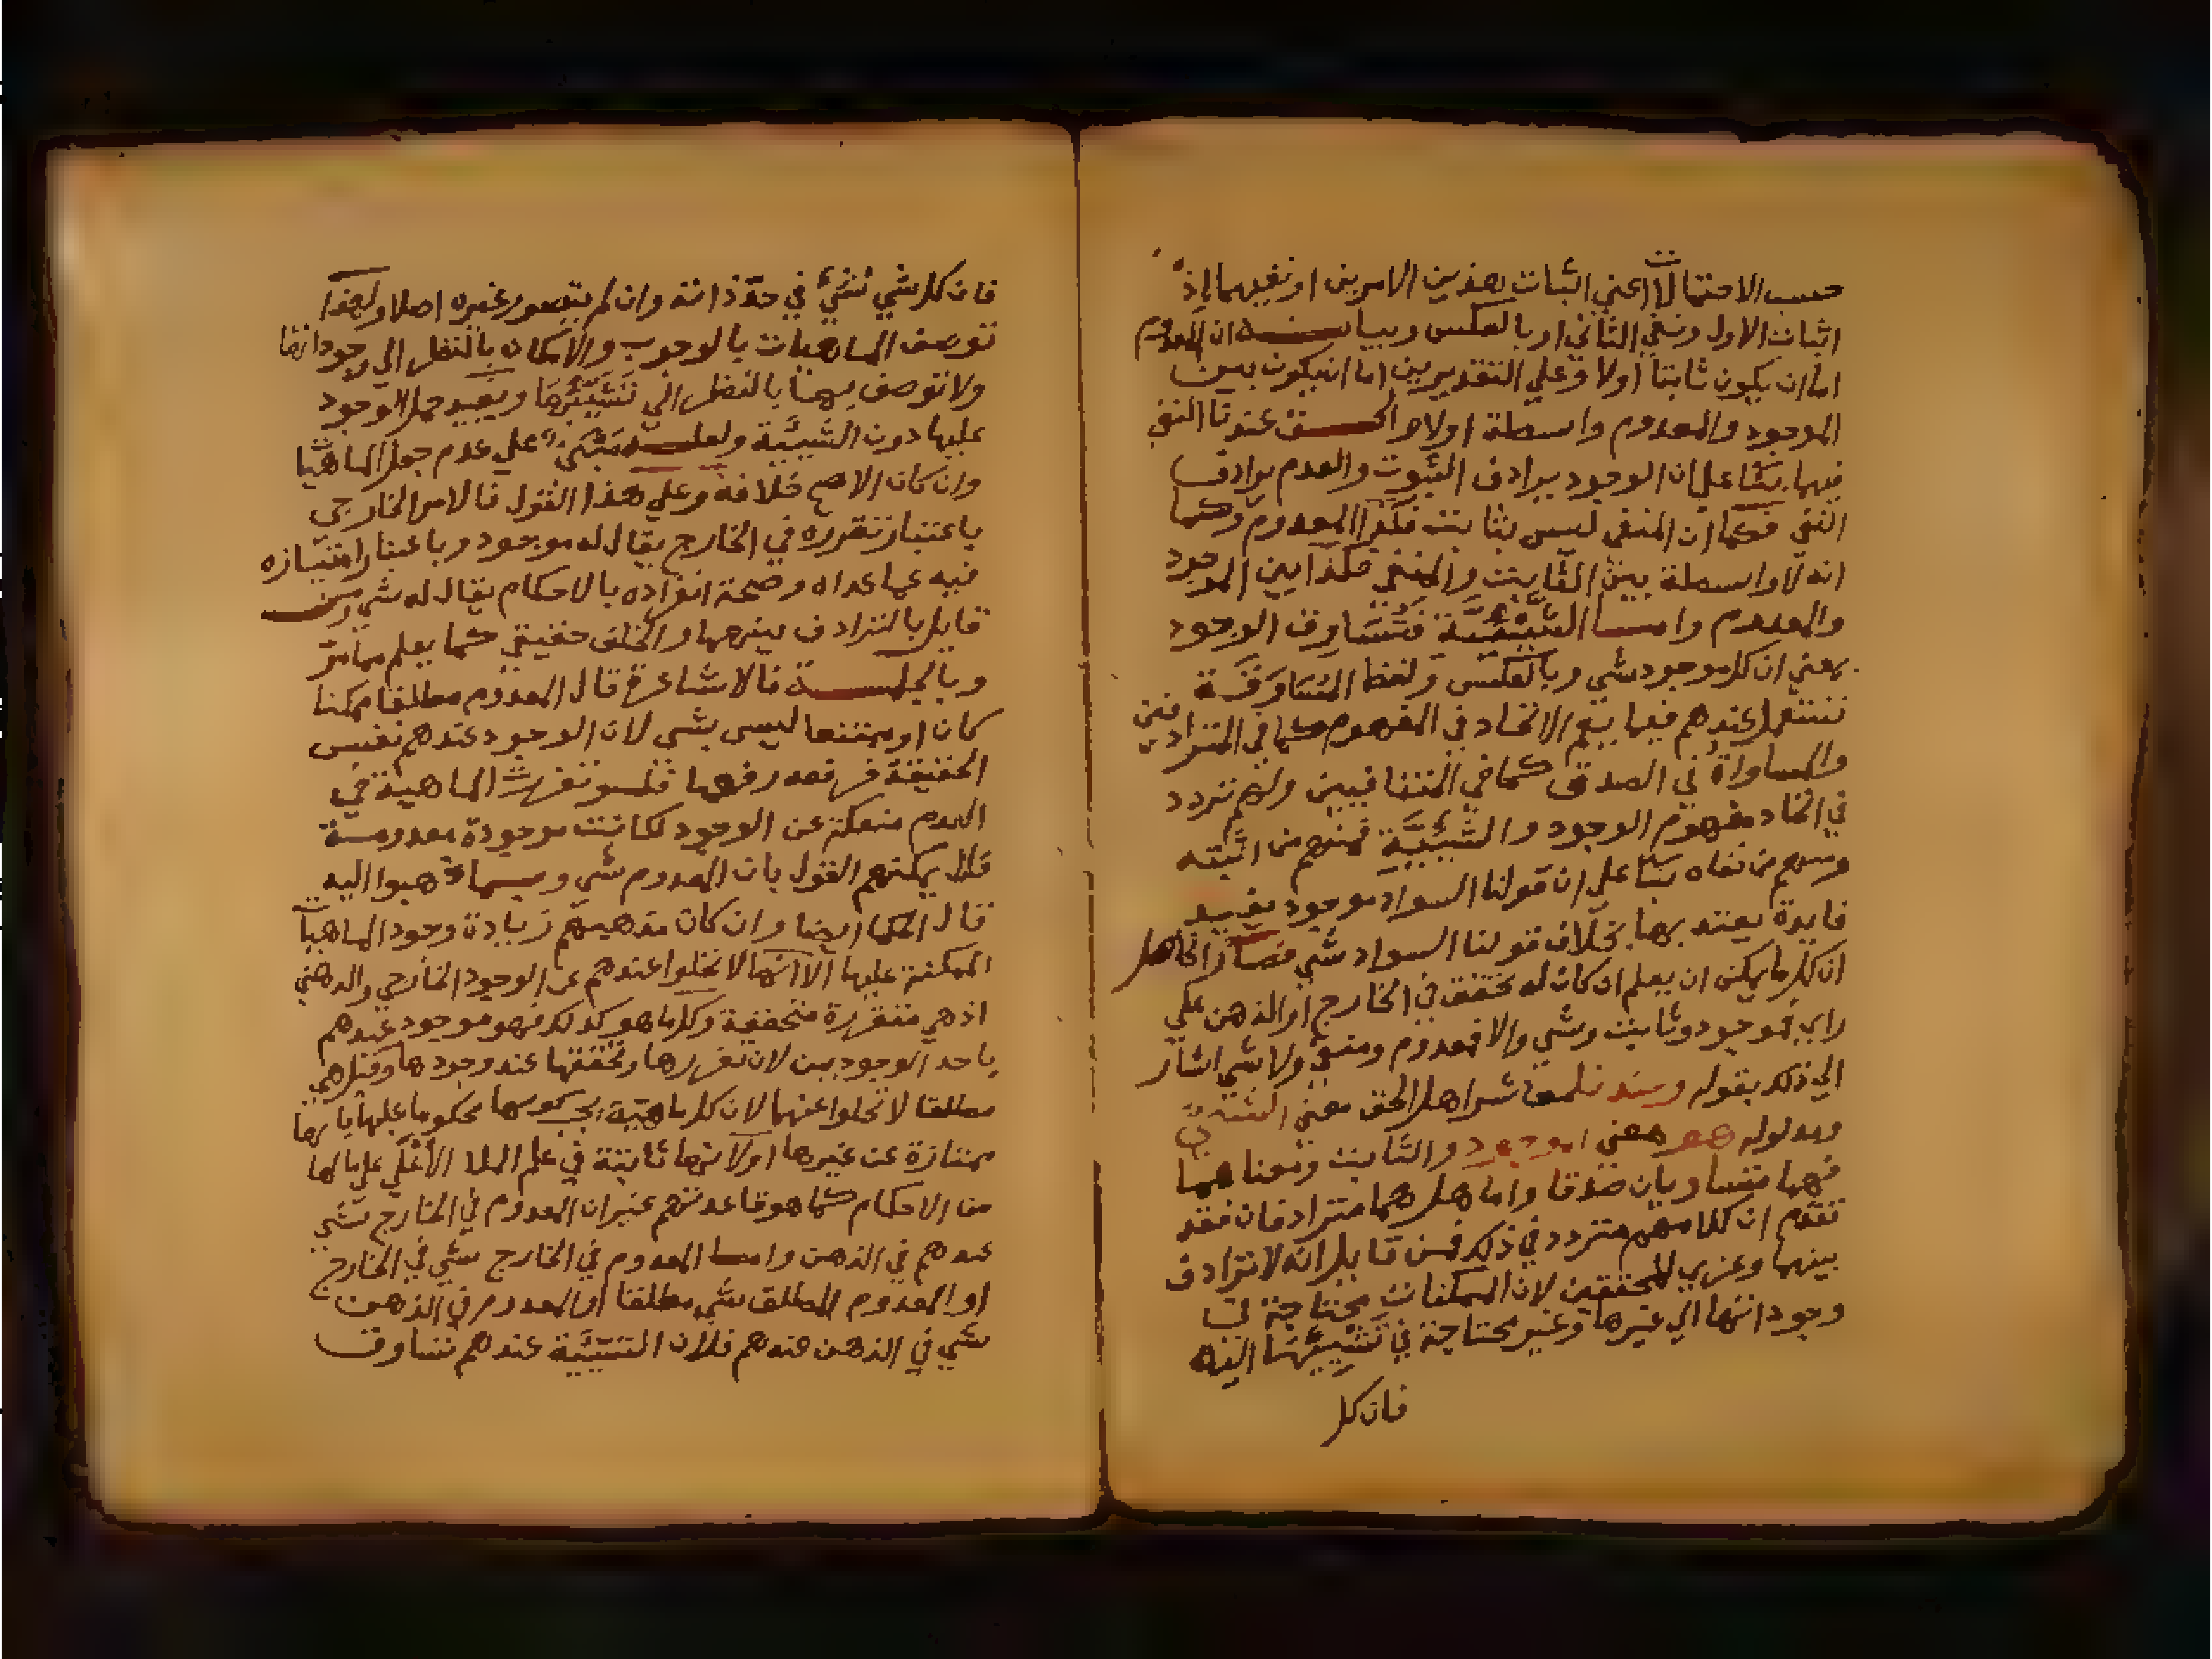 حسب الاحتمالات اعني اثبات هذين الامرين او نفيهما إذ
اثبات الاول ونفي الثاني او بالعكس وبيانه ان المعدوم
اما ان يكون ثابتا اولا وعلي التقديرين اما ان يكون بين
الموجود والمعدوم واسطة اولا والحق عندنا النفي
فيهما بنا علي ان الوجود يرادف الثبوت والعدم يرادف
النفي فكما ان المنفي ليس بثابت فكذا المعدوم وكما
انه لا واسطة بين الثابت والمنفي فكذا بين الموجود
والمعدوم واما الشيئية فتساوق الوجود
بمعني ان كل موجود شي وبالعكس ولفظ المساوقة
تستعمل عندهم فيما يعم الاتحاد في المفهوم كما في المترادفين
والمساواة في الصدق كما في المتنافيين ولهم تردد
في اتحاد مفهوم الوجود والشيئية فمنهم من اثبته
ومنهم من نفاه بنا علي ان قولنا السواد موجود يفيد
فايدة يعتد بها بخلاف قولنا السواد شي فصار الحاصل
ان كل ما يمكن ان يعلم ان كان له تحقق في الخارج او الذهن علي
راي فموجود وثابت وشي والا فمعدوم ومنفي ولا شي اشار
الي ذلك بقوله وعند اهل الحق معني الشي
ومدلوله هو معني الموجود والثابت ومعناهما
فهما متساويان صدقا واما هل هما مترادفان فقد
تقدم ان كلامهم متردد في ذلك فمن قايل انه لا ترادف
بينهما وعزي للمحققين لان الممكنات محتاجة في
وجوداتها الي غيرها وغير محتاجة في شيئيتها اليه
فان كل
فان كل شي شي في حد ذاته وان لم يتصور غيره اصلا ولهذا
توصف الماهيات بالوجوب والامكان بالنظر الي وجوداتها
ولا توصف بهما بالنظر الي شيئيتها ويفيد حمل الوجود
عليها دون الشيئية ولعله مبني علي عدم جعل الماهيا
وان كان الاصح خلافه وعلي هذا القول فالامر الخارجي
باعتبار تقرره في الخارج يقال له موجود وباعتبار امتيازه
فيه عما عداه وصحة انفراده بالاحكام يقال له شي ومن
قايل بالترادف بينهما والخلف حقيقي كما يعلم مما مر
وبالجملة فالاشاعرة قال المعدوم مطلقا ممكنا
كان او ممتنعا ليس بشي لان الوجود عندهم نفس
الحقيقة فرفعه رفعها فلو تقررت الماهية في
العدم منفكة عن الوجود لكانت موجودة معدومة
فلا يمكنهم القول بان المعدوم شي وبما ذهبوا اليه
قال الحكما ايضا وان كان مذهبهم زيادة وجود الماهيات
الممكنة عليها الا انها لا تخلوا عندهم عن الوجود الخارجي والذهني
اذ هي متقررة متحققة وكل ما هو كذلك فهو موجود عندهم
باحد الوجودين لان تقررها وتحققها عند وجودها وقيل هي
مطلقا لا تخلوا عنهما لان كل ماهية محكوما عليها بانها
ممتازة عن غيرها اولا نها ثابتة في علم الملا الأعلي علي مالها
من الاحكام كما هو قاعدتهم غير ان المعدوم في الخارج شي
عندهم في الذهن واما المعدوم في الخارج شي في الخارج
او المعدوم المطلق شي مطلقا او المعدوم في الذهن
شي في الذهن عندهم فلان الشيئية عندهم تساوق